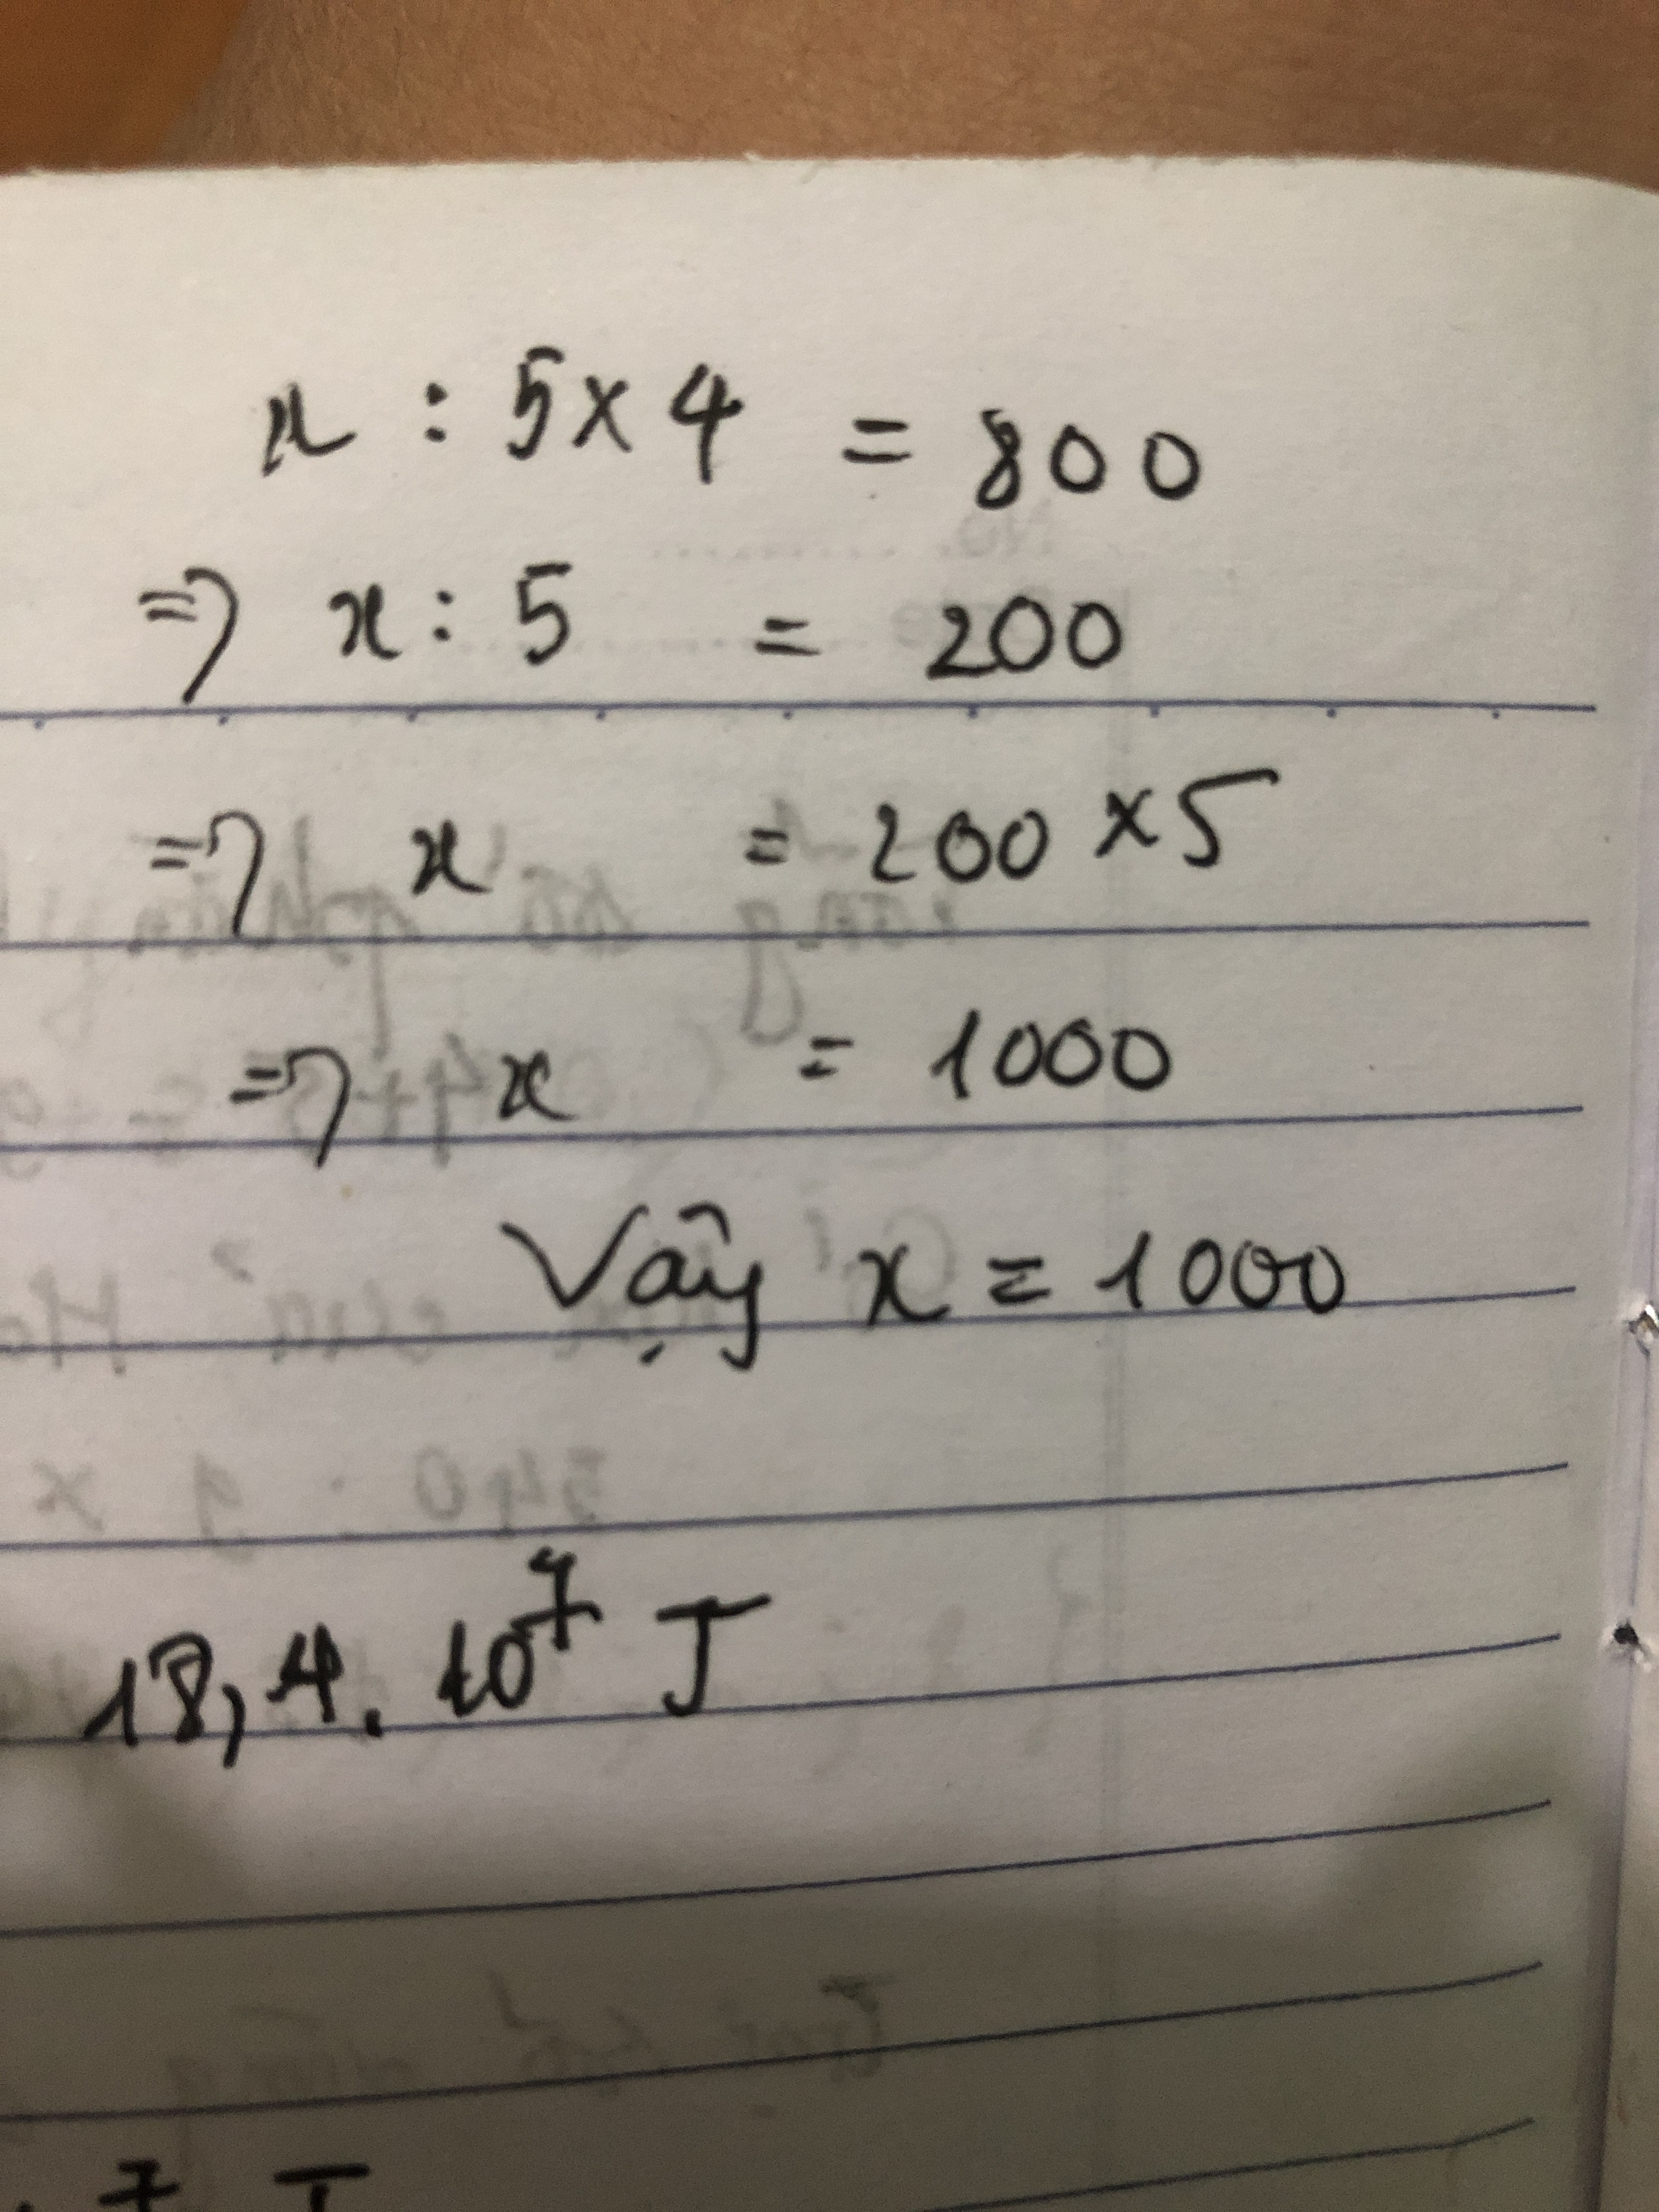 x : 5 × 4 = 800
=> x : 5 = 200
=> x = 200 × 5
=> x = 1000
Vậy x = 1000
18,4. 10⁷ J
7 J